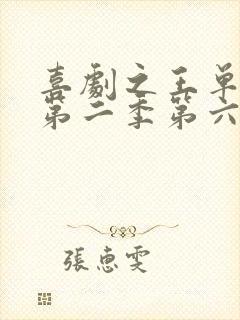 喜劇之王单
第二季第六
張惠雯